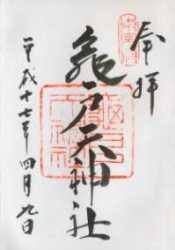 奉拝
亀戸天神社
平成十七年四月九日